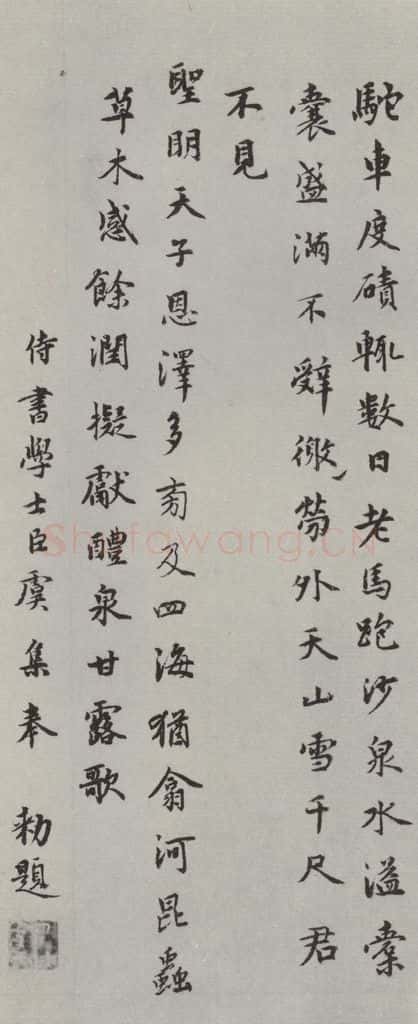 駝車度磧輒數日老馬跑沙泉水溢橐
囊盛滿不辭徼勞外天山雪千尺君
不見
聖明天子恩澤多旁及四海猶翕河昆蟲
草木感餘潤擬獻醴泉甘露歌
侍書學士臣虞集奉 勑題
Shufawang.CN